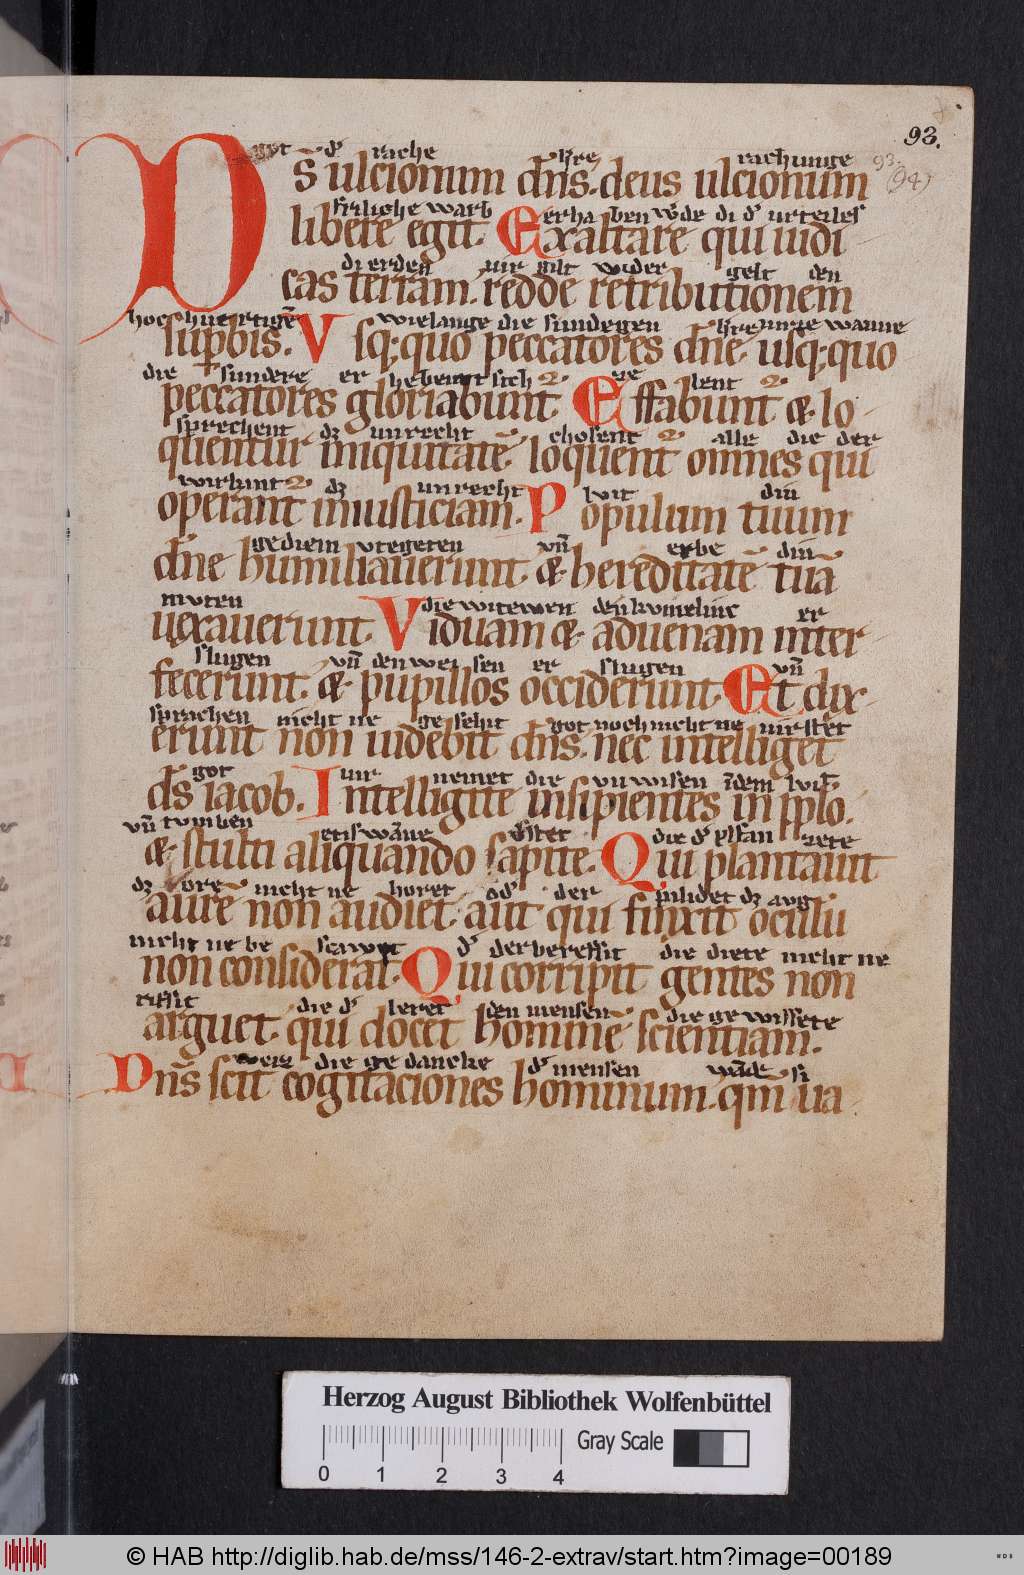 93.
93.
(94)
got d̛ rache h̛re rachunge
Ds̄ ulcionum dn̄s. deus ulcionum
friliche warb erhaben w̛de di d̛ urteiles
libere egit. Exaltare qui iudi-
di erden uir gilt wider gelt den
cas terram. redde retributionem
hochuertigē wielange die sundegen h̛re unze wanne
supbis. Usq; quo peccatores dn̄e usq; quo
die sundere er hebent sich ge lent
peccatores gloriabunt. Effabunt & lo-
sprechent dz unrecht chosent alle die der
quentur iniquitatē loquent omnes qui
wirkint dz unrecht lvit din
operant iniusticiam. Populum tuum
gediem vtegeten vn̄ erbe din
dn̄e humiliauerunt. & hereditatē tuā
mvten die witewen den kvmelinc er
uexauerunt. Viduam & aduenam inter-
slugen vn̄ den wei sen er slugen vn̄
fecerunt. & pupillos occiderunt. Et dix-
sprachen nicht ne gesehit got noch nicht ne uirstet
erunt non uidebit dn̄s. nec intelliget
got uir nemet die vn wisen īdem lvit
ds̄ iacob. Intelligite insipientes in pplo.
vn̄ tvmben etiswāne v̛stet die d̛ plan zete
& stulti aliquando sapite. Qui plantauit
dz ore nicht ne horet od̛ der bilidet dz avg
aurē non audiet. aut qui finxit oculū
nicht ne be scawet d̛ der beressit die diete nicht ne
non considerat. Qui corripit gentes non
riffit die d̛ leret den mensen die gewissete
arguet. qui docet hominē scientiam.
weiz die gedancke d̛ mensen wāde si
Dn̄s scit cogitaciones hominum. qm̄ ua-
Herzog August Bibliothek Wolfenbüttel
Gray Scale
0 1 2 3 4
© HAB http://diglib.hab.de/mss/146-2-extrav/start.htm?image=00189